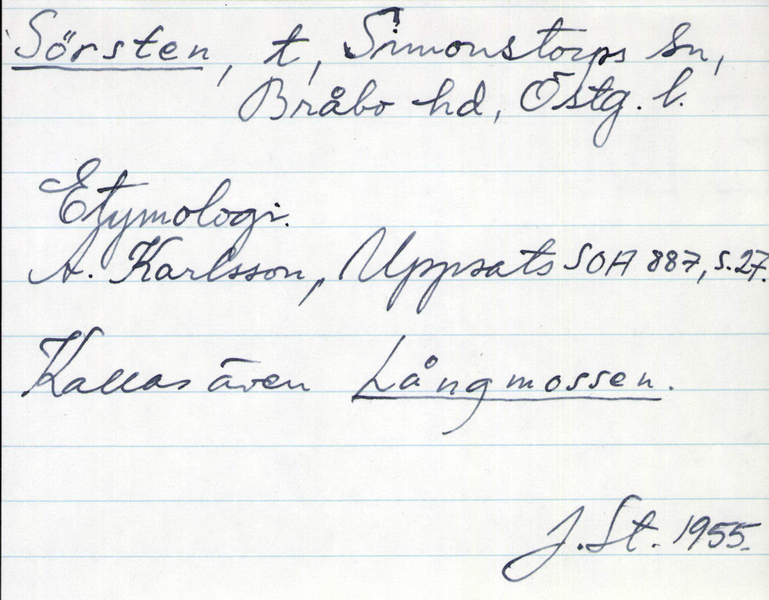 Sörsten, t, Simonstorps sn,
Bråbo hd, Östg. l.
Etymologi.
A. Karlsson, Uppsats SOA 887, s. 27.
Kallas även Långmossen.
J. St. 1955.